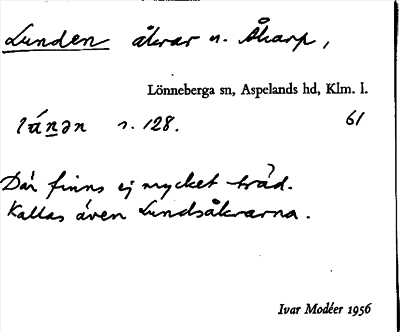 Lunden åkrar n. Åkarp,
Lönneberga sn, Aspelands hd, Klm. l.
lúnən s. 128. 61
Där finns ej mycket träd.
Kallas även Lundsåkrarna.
Ivar Modéer 1956